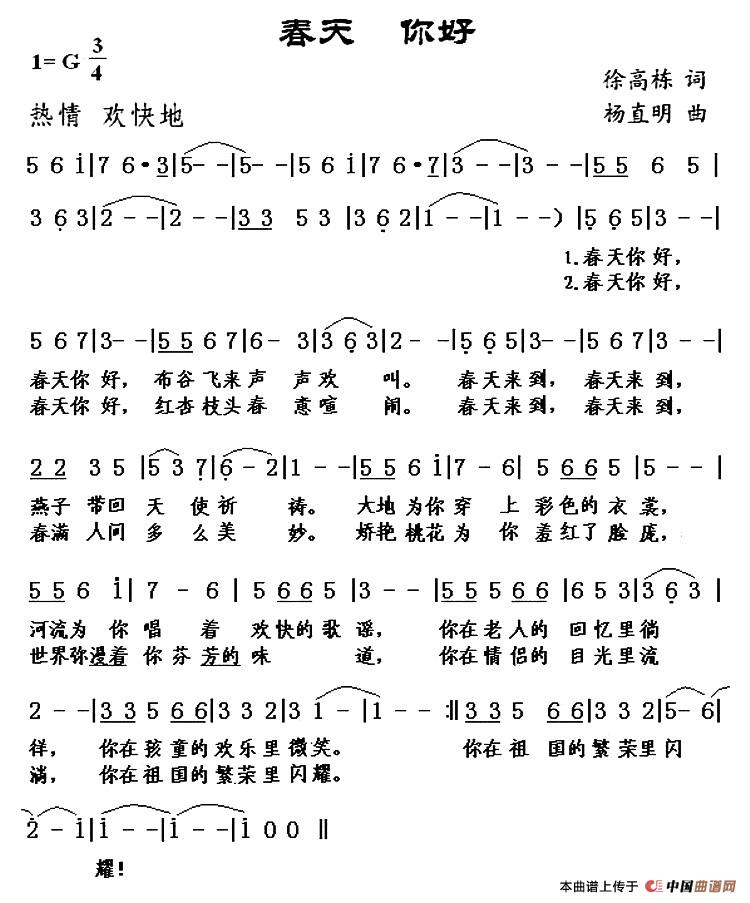 春天 你好
1= G 3/4
徐高栋 词
热情 欢快地
杨直明 曲
5 6 i|7 6·3|5- -|5- -|5 6 i|7 6·7|3 - -|3 - -|5 5 6 5|
3 6 3|2 - -|2 - -|3 3 5 3|3 6 2|1 - -|1 - -）|5 6 5|3 - -|
1.春天你好，
2.春天你好，
5 6 7|3- -|5 5 6 7|6- 3|3 6 3|2 - -|5 6 5|3- -|5 6 7|3 - -|
春天你 好， 布谷 飞来 声 声 欢 叫。 春天来 到， 春天来 到，
春天你 好， 红杏 枝头 春 意 喧 闹。 春天来 到， 春天来 到，
2 2 3 5|5 3 7|6 - 2|1 - -|5 5 6 i|7 - 6|5 6 6 5|5 - -|
燕子 带回 天 使 祈 祷。 大地 为你 穿 上 彩色的 衣 裳，
春满 人间 多 么 美 妙。 娇艳 桃花 为 你 羞红了 脸 庞，
5 5 6 i|7 - 6|5 6 6 5|3 - -|5 5 5 6 6|6 5 3|3 6 3|
河流为 你 唱 着 欢快的 歌 谣， 你在老人的 回忆里徜
世界弥漫着 你 芬 芳的 味 道， 你在情侣的 目光里流
2 - -|3 3 5 6 6|3 3 2|3 1 -|1 - - :‖3 3 5 6 6|3 3 2|5- 6|
徉， 你在孩童的欢乐里微笑。 你在祖 国的繁荣里闪
淌， 你在祖国的繁荣里闪耀。
2 - i|i - -|i - -|i 0 0 ‖
耀！
本曲谱上传于 中国曲谱网